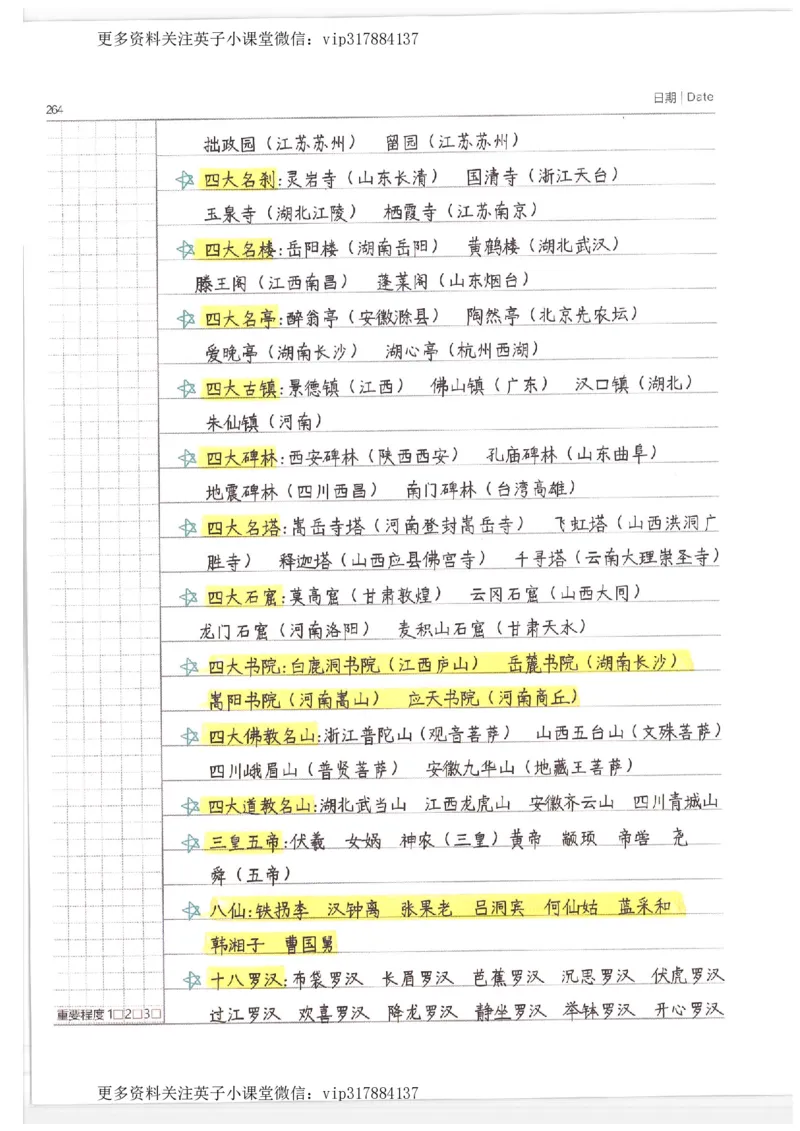 更多资料关注英子小课堂微信：vip317884137
日期 | Date
264
拙政园（江苏苏州） 留园（江苏苏州）
四大名刹:灵岩寺（山东长清） 国清寺（浙江天台）
玉泉寺（湖北江陵） 栖霞寺（江苏南京）
四大名楼:岳阳楼（湖南岳阳） 黄鹤楼（湖北武汉）
滕王阁（江西南昌） 蓬莱阁（山东烟台）
四大名亭:醉翁亭（安徽滁县） 陶然亭（北京先农坛）
爱晚亭（湖南长沙） 湖心亭（杭州西湖）
四大古镇:景德镇（江西） 佛山镇（广东） 汉口镇（湖北）
朱仙镇（河南）
四大碑林:西安碑林（陕西西安） 孔庙碑林（山东曲阜）
地震碑林（四川西昌） 南门碑林（台湾高雄）
四大名塔:嵩岳寺塔（河南登封嵩岳寺） 飞虹塔（山西洪洞广
胜寺） 释迦塔（山西应县佛宫寺） 千寻塔（云南大理崇圣寺）
四大石窟:莫高窟（甘肃敦煌） 云冈石窟（山西大同）
龙门石窟（河南洛阳） 麦积山石窟（甘肃天水）
四大书院:白鹿洞书院（江西庐山） 岳麓书院（湖南长沙）
嵩阳书院（河南嵩山） 应天书院（河南商丘）
四大佛教名山:浙江普陀山（观音菩萨） 山西五台山（文殊菩萨）
四川峨眉山（普贤菩萨） 安徽九华山（地藏王菩萨）
四大道教名山:湖北武当山 江西龙虎山 安徽齐云山 四川青城山
三皇五帝:伏羲 女娲 神农（三皇）黄帝 颛顼 帝喾 尧
舜（五帝）
八仙:铁拐李 汉钟离 张果老 吕洞宾 何仙姑 蓝采和
韩湘子 曹国舅
十八罗汉:布袋罗汉 长眉罗汉 芭蕉罗汉 沉思罗汉 伏虎罗汉
过江罗汉 欢喜罗汉 降龙罗汉 静坐罗汉 举钵罗汉 开心罗汉
重要程度 1□2□3□
更多资料关注英子小课堂微信：vip317884137